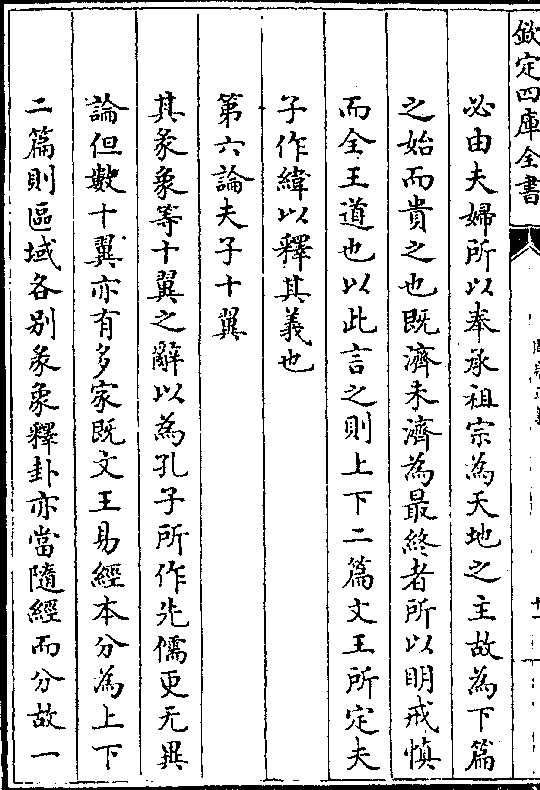 欽定四庫全書
必由夫婦所以奉承祖宗為天地之主故為下篇
之始而貴之也既濟未濟為最終者所以明戒慎
而全王道也以此言之則上下二篇文王所定夫
子作緯以釋其義也
第六論夫子十翼
其彖象等十翼之辭以為孔子所作先儒更无異
論但數十翼亦有多家既文王易經本分為上下
二篇則區域各別彖象釋卦亦當隨經而分故一